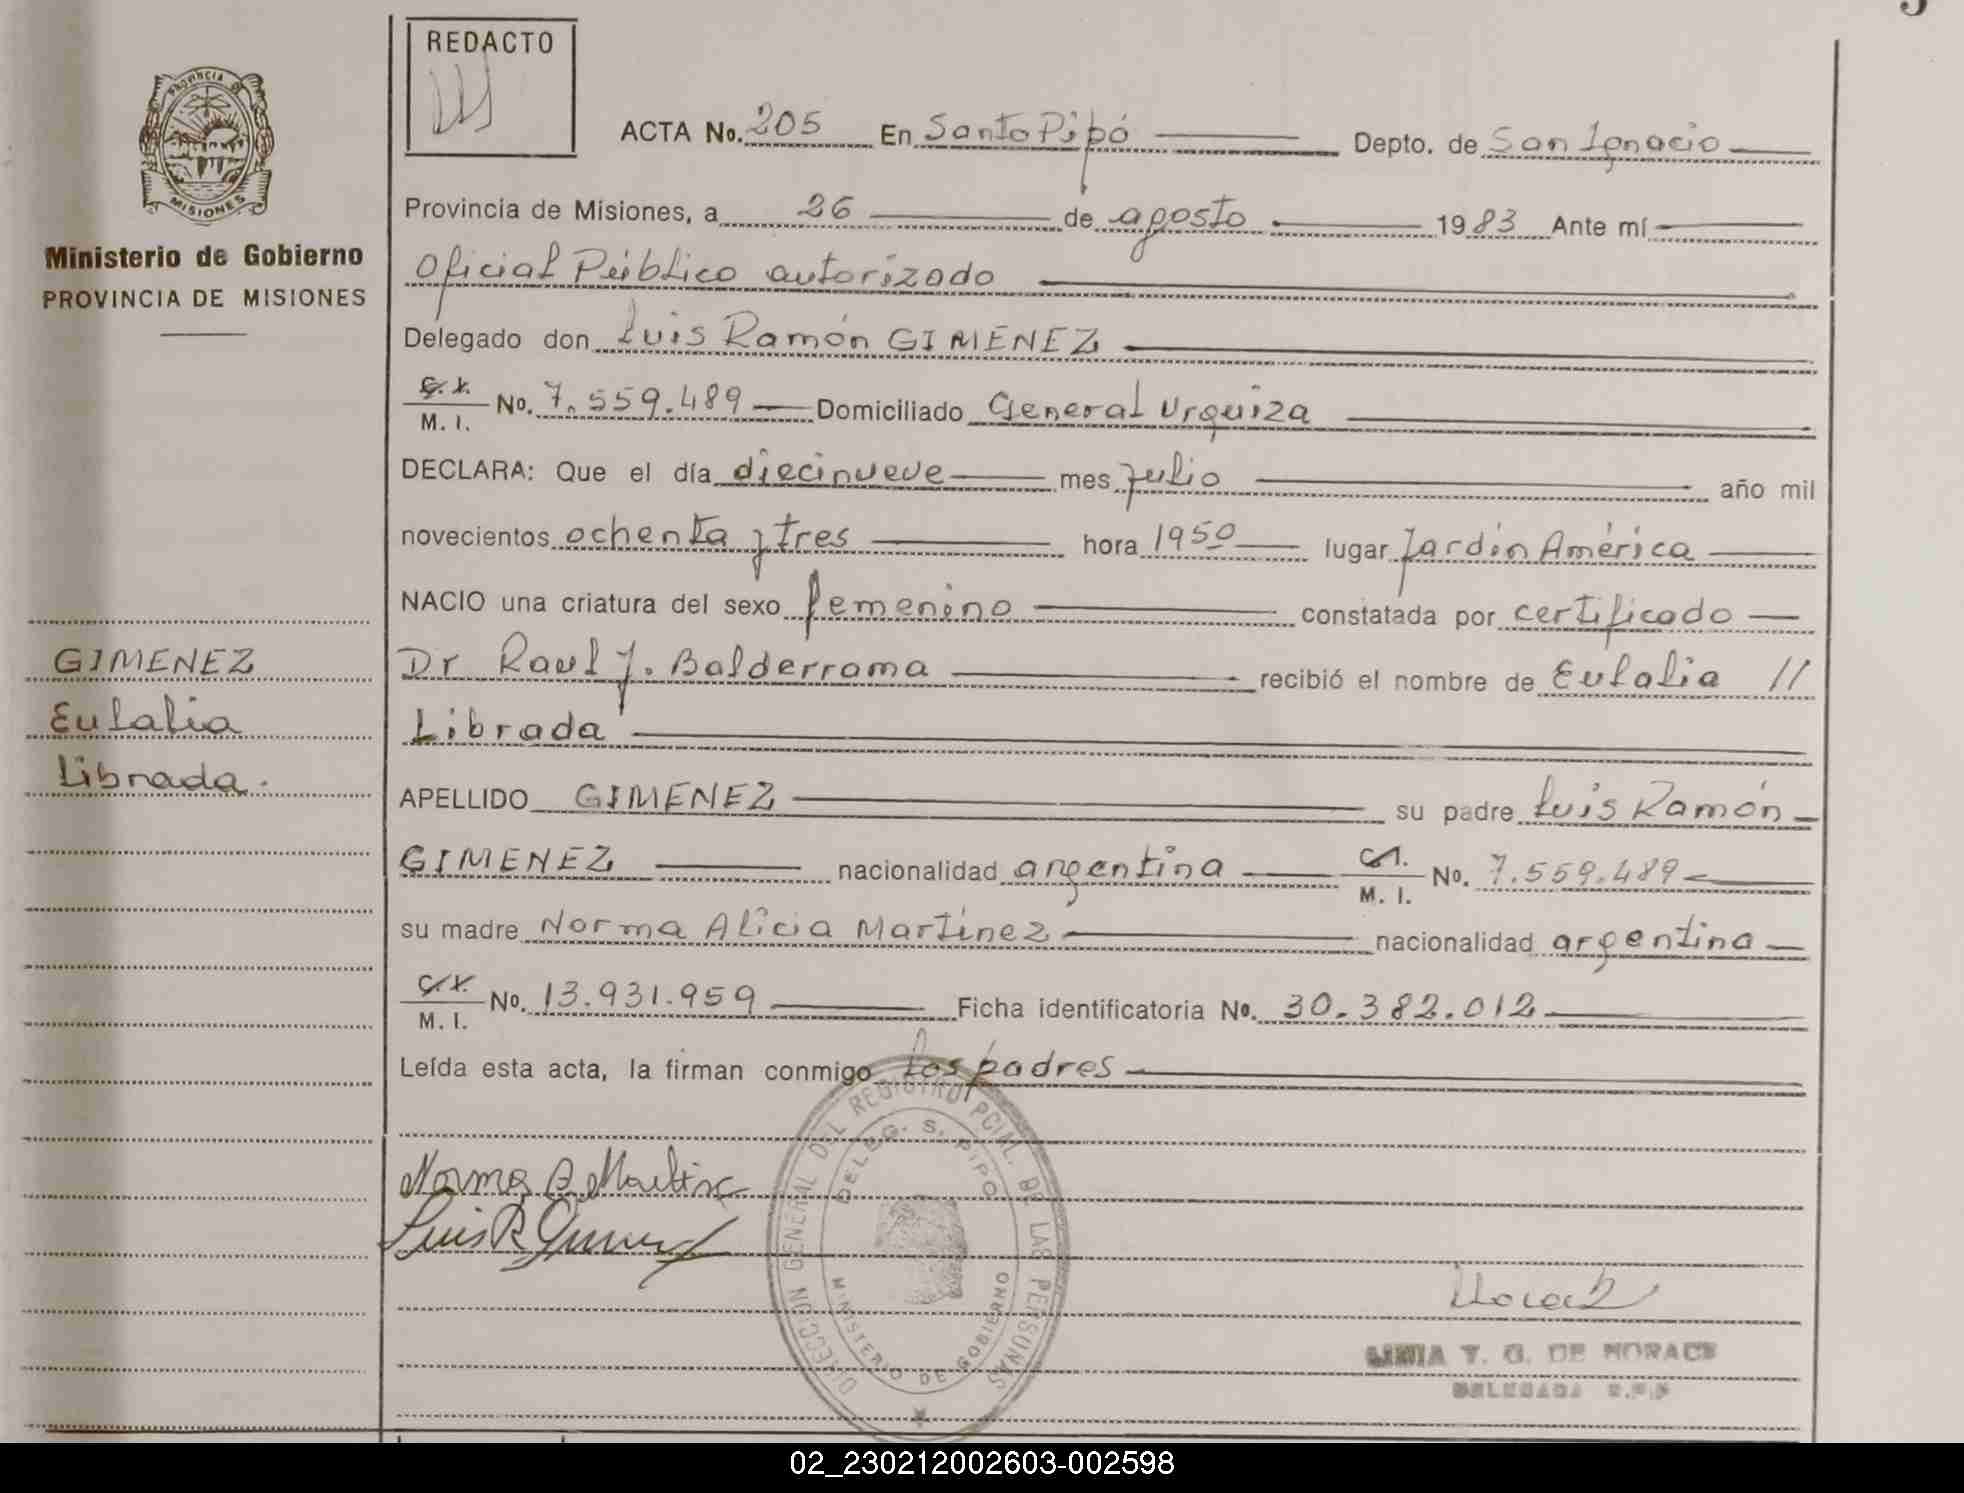 REDACTO
ACTA No. 205 En Santo Pipó Depto. de San Ignacio
Provincia de Misiones, a 26 de agosto 1983 Ante mí
Oficial Público autorizado
Delegado don Luis Ramón GIMENEZ
C. I. M. I. No. 7.559.489 Domiciliado General Urquiza
DECLARA: Que el día diecinueve mes julio año mil
novecientos ochenta y tres hora 1950 lugar Jardín América
NACIO una criatura del sexo femenino constatada por certificado
Dr Raul J. Balderrama recibió el nombre de Eulalia //
Librada
APELLIDO GIMENEZ su padre Luis Ramón
GIMENEZ nacionalidad argentina C. I. M. I. No. 7.559.489
su madre Norma Alicia Martínez nacionalidad argentina
C. I. M. I. No. 13.931.959 Ficha identificatoria No. 30.382.012
Leída esta acta, la firman conmigo los padres
Norma A Martinez
Luis R Gimenez
PROVINCIA DE
MISIONES
Ministerio de Gobierno
PROVINCIA DE MISIONES
GIMENEZ
Eulalia
Librada.
DIRECCION GENERAL DEL REGISTRO PCIAL. DE LAS PERSONAS
DELEG. S. PIPO
MINISTERIO DE GOBIERNO
T. G. DE MORAES
DELEGADA
02_230212002603-002598